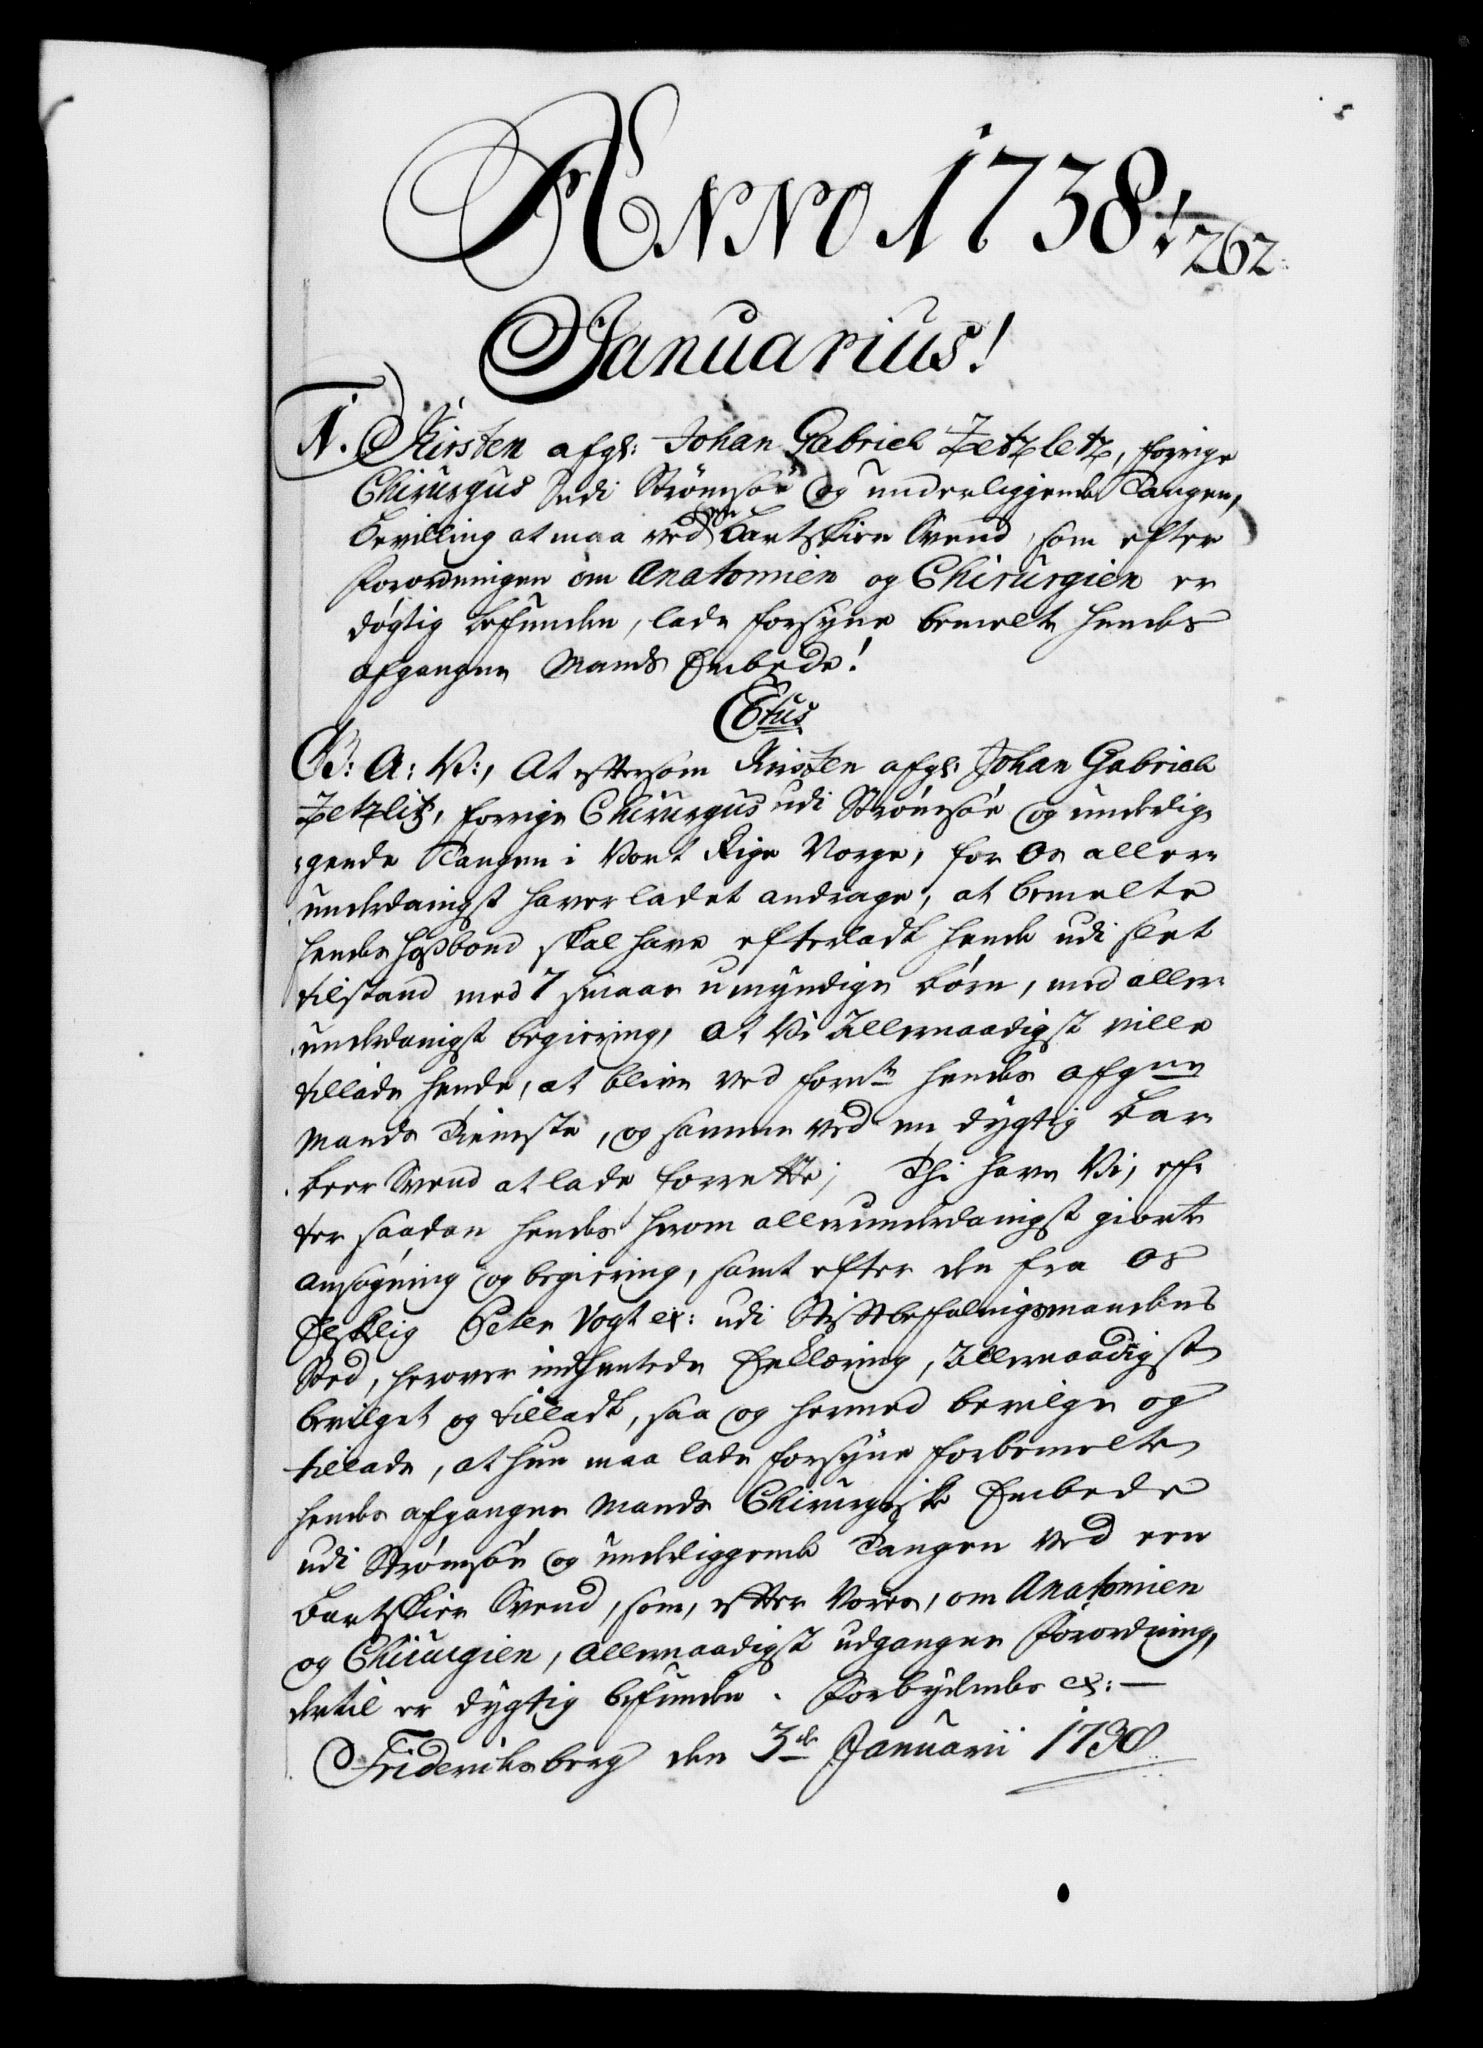 ANNO 1738!
262.
Januarius!
1. Kirsten afgl: Johan Gabriel Zetzletz, forrige
Chirurgus Udi Strømsøe og underliggende Tangen,
Bevilling at maa ved een Bartskier Svend, som efter
Forordningen om Anatomien og Chirurgien er
døgtig befunden, lade forsyne bemelte hendes
afgangne Mands Embede!
Ctus
G: A: V:, At eftersom Kirsten afgl: Johan Gabriel
Zetzlitz, forrige Chirurgus udi Strømsøe og underlig-
gende Tangen i Vort Rige Norge, for Os aller-
underdanigst haver ladet andrage, at bemelte
hendes Hoßbond skal have efterladt hende udi slet
tilstand med 7 smaae umyndige børn, med aller-
underdanigst begiering, at Vi Allernaadigst ville
tillade hende, at blive ved fornte hendes afgne
Mands Tieneste, og samme ved en dygtig Bar-
beer Svend at lade forrette; Thi have Vi, ef-
ter saadan hendes herom allerunderdanigst giorte
ansøgning og begiering, samt efter den fra Os
Elskelig Peter Vogt etc: udi Stiftbefalningsmandens
Sted, herover indhentede Erklæring, Allernaadigst
bevilget og tilladt, saa og hermed bevilge og
tillade, at hun maa lade forsyne forbemelte
hendes afgangne Mands Chirurgiske Embede
udi Strømsøe og underliggende Tangen ved een
Bartskier Svend, som, efter Vores, om Anatomien
og Chirurgien, allernaadigst udgangne Forordning,
dertil er dygtig befunden. Forbydendes etc: —
Friderichsberg den 3de Januarii 1738